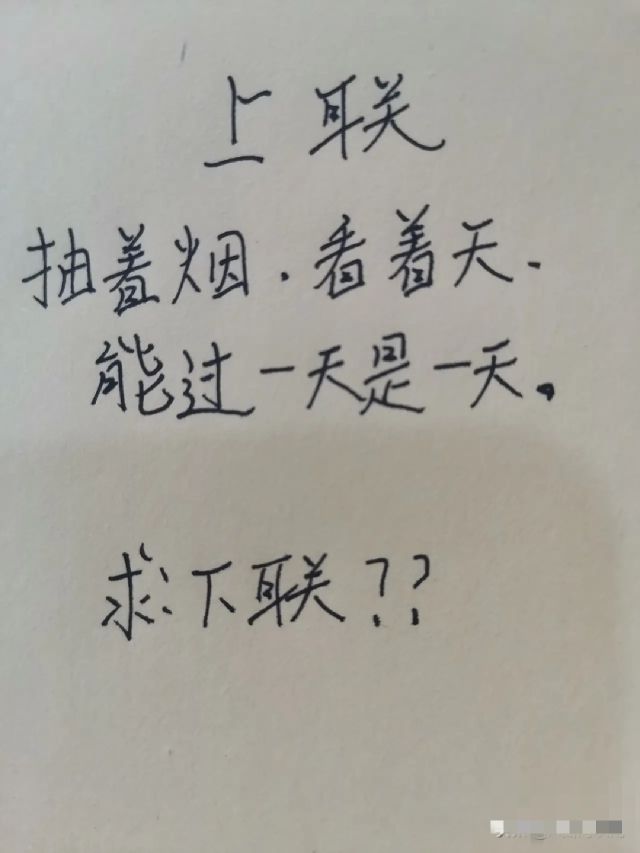 上联
抽着烟.看着天.
能过一天是一天。
求下联??